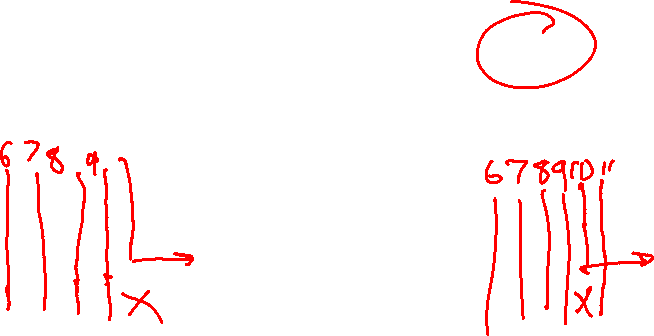 6 7 8 9 6 7 8 9 10 11
X X